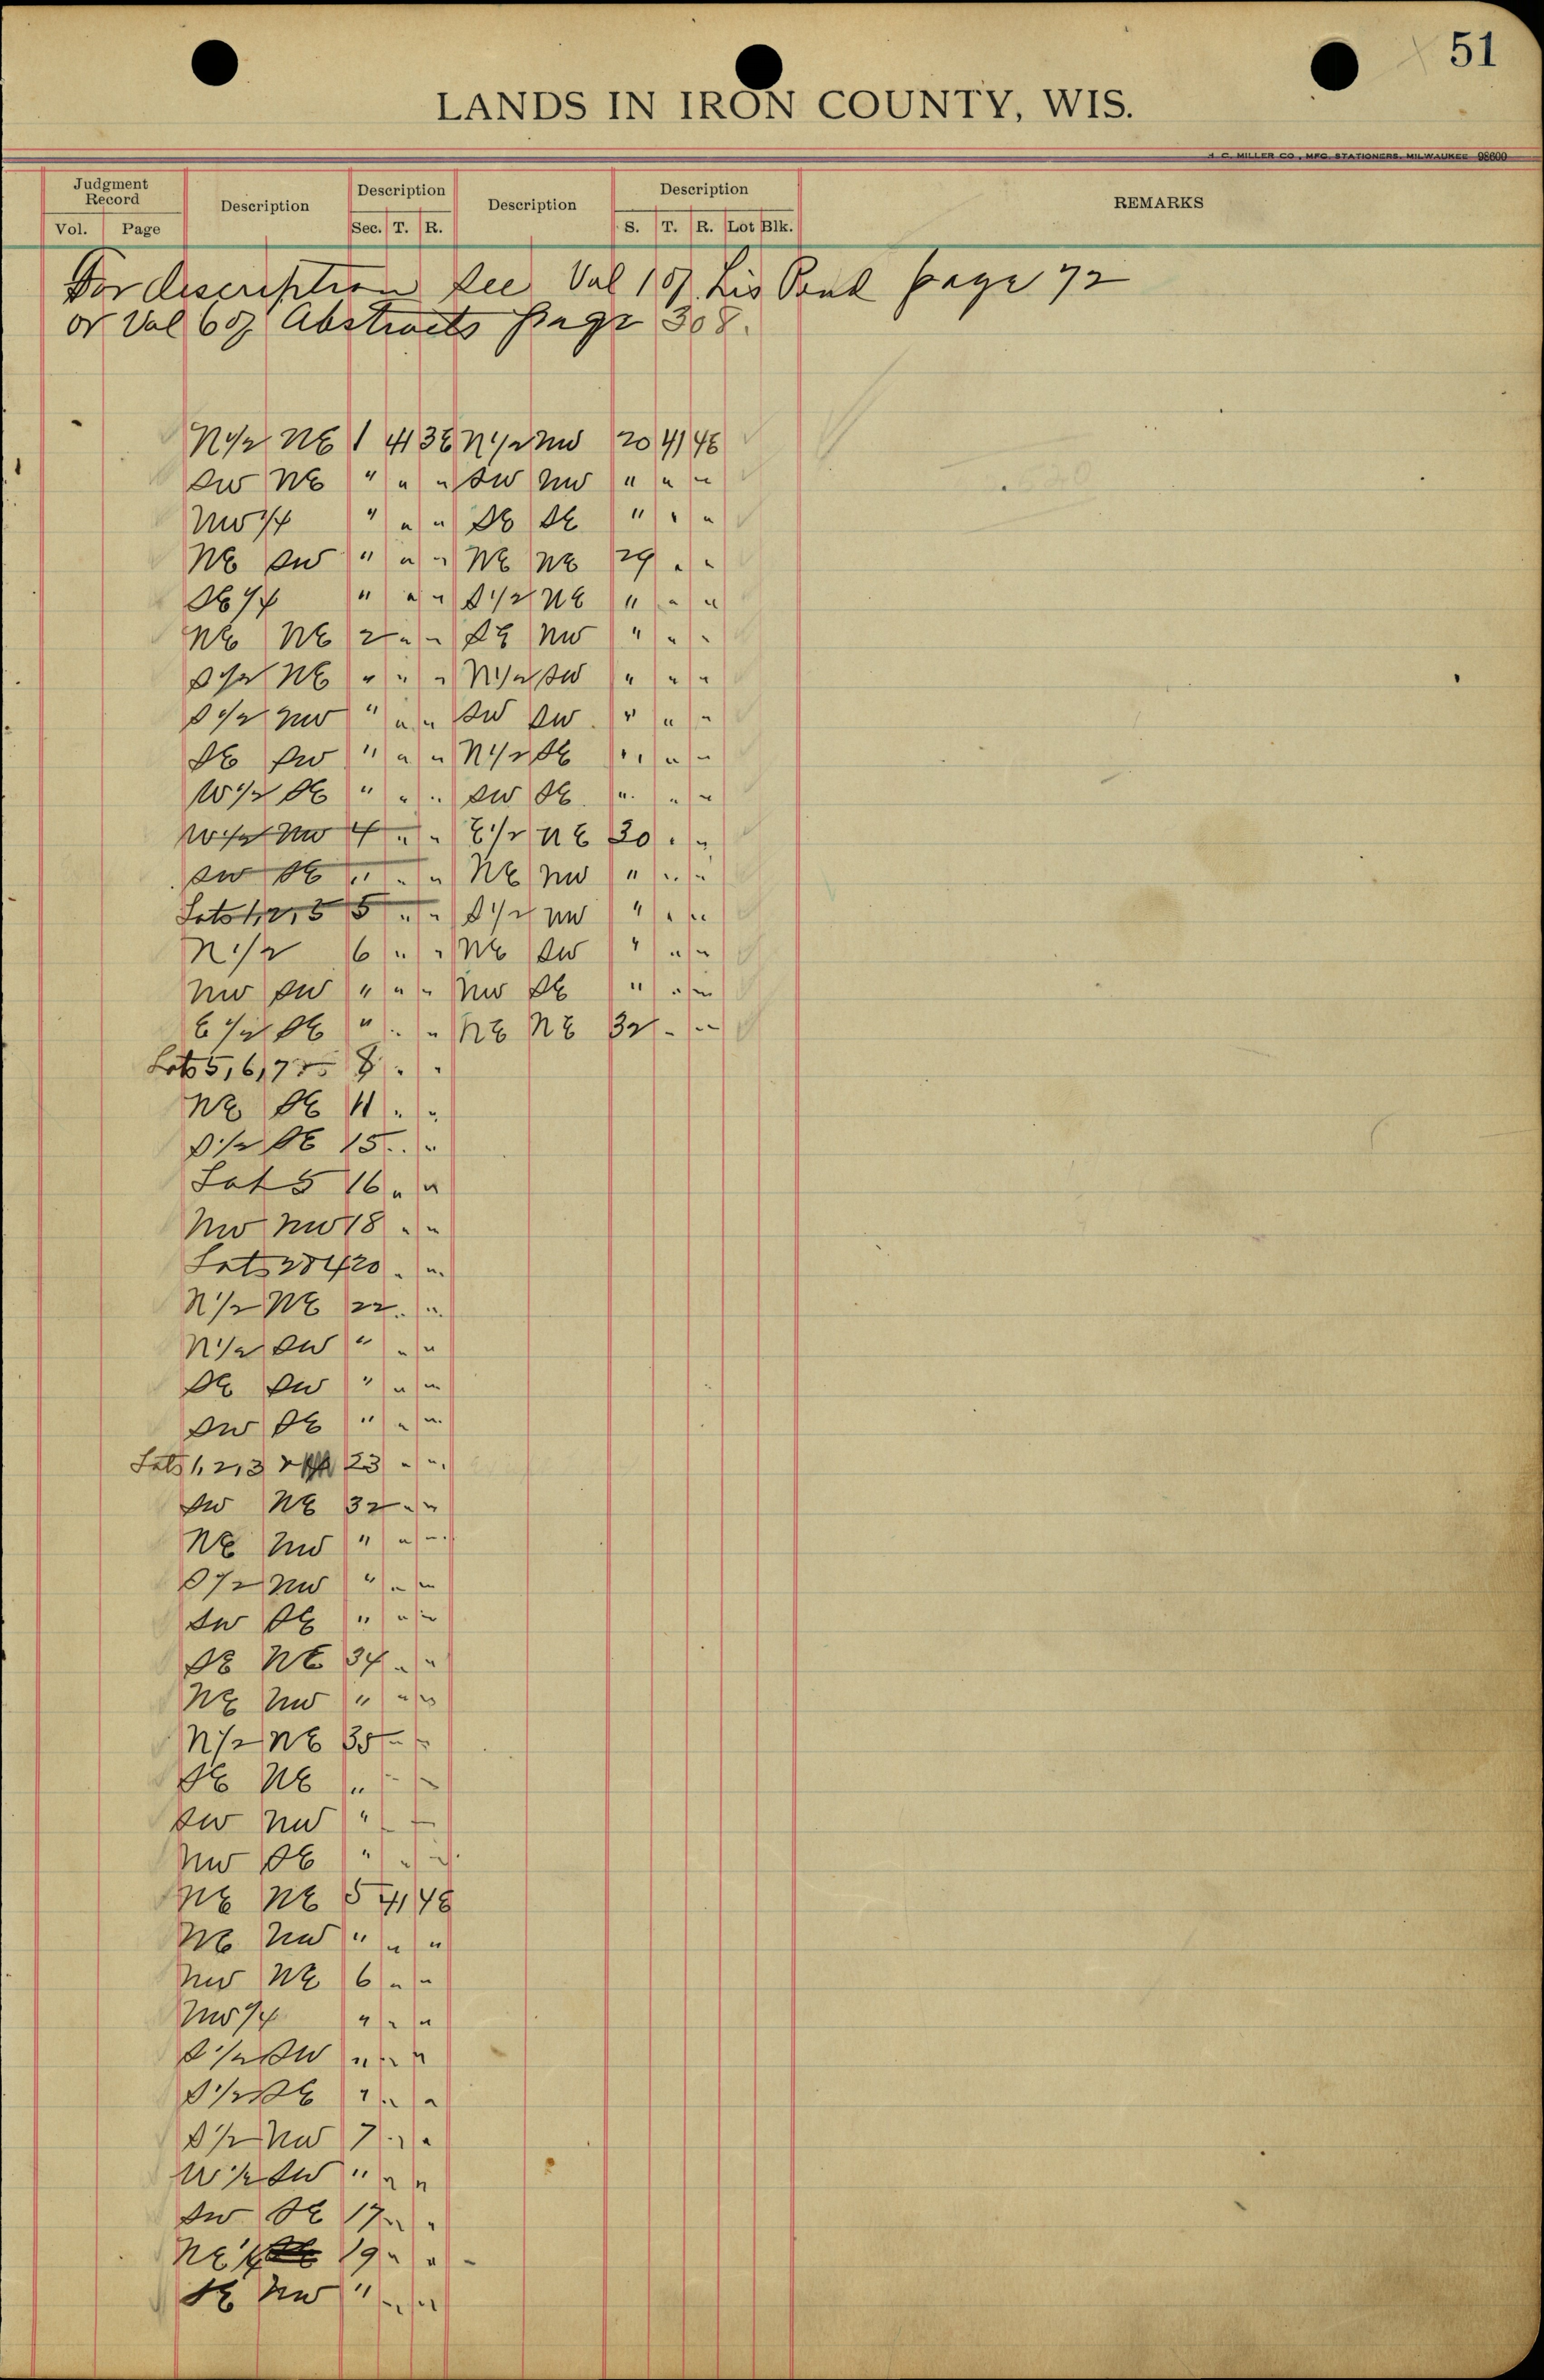 51
LANDS IN IRON COUNTY, WIS.
H. C. MILLER CO., MFG. STATIONERS, MILWAUKEE 98600
Judgment Record Description Description Description Description REMARKS
Vol. Page Sec. T. R. S. T. R. Lot Blk.
For description see Vol 1 of Lis Pend page 72
or Vol 6 of Abstracts page 308.
N1/2 NE 1 41 3E N1/2 NW 20 41 4E
SW NE " " " SW NW " " "
NW1/4 " " " SE SE " " "
NE SW " " " NE NE 29 " "
SE1/4 " " " S1/2 NE " " "
NE NE 2 " " SE NW " " "
S1/2 NE " " " N1/2 SW " " "
S1/2 NW " " " SW SW " " "
SE SW " " " N1/2 SE " " "
W1/2 SE " " " SW SE " " "
W1/2 NW 4 " " E1/2 NE 30 " "
SW SE " " " NE NW " " "
Lots 1,2,3 5 " " S1/2 NW " " "
N1/2 6 " " NE SW " " "
NW SW " " " NW SE " " "
E1/2 SE " " " NE NE 32 " "
Lots 5,6,7 8 " "
NE SE 11 " "
S1/2 SE 15 " "
Lot 5 16 " "
NW NW 18 " "
Lots 2 & 4 20 " "
N1/2 NE 22 " "
N1/2 SW " " "
SE SW " " "
SW SE " " "
Lots 1,2,3 23 " "
SW NE 32 " "
NE NW " " "
S1/2 NW " " "
SW SE " " "
SE NE 34 " "
NE NW " " "
N1/2 NE 35 " "
SE NE " " "
SW NW " " "
NW SE " " "
NE NE 5 41 4E
NE NW " " "
NW NE 6 " "
NW1/4 " " "
S1/2 SW " " "
S1/2 SE " " "
S1/2 NW 7 " "
W1/2 SW " " "
SW SE 17 " "
NE1/4 19 " "
SE NW " " "